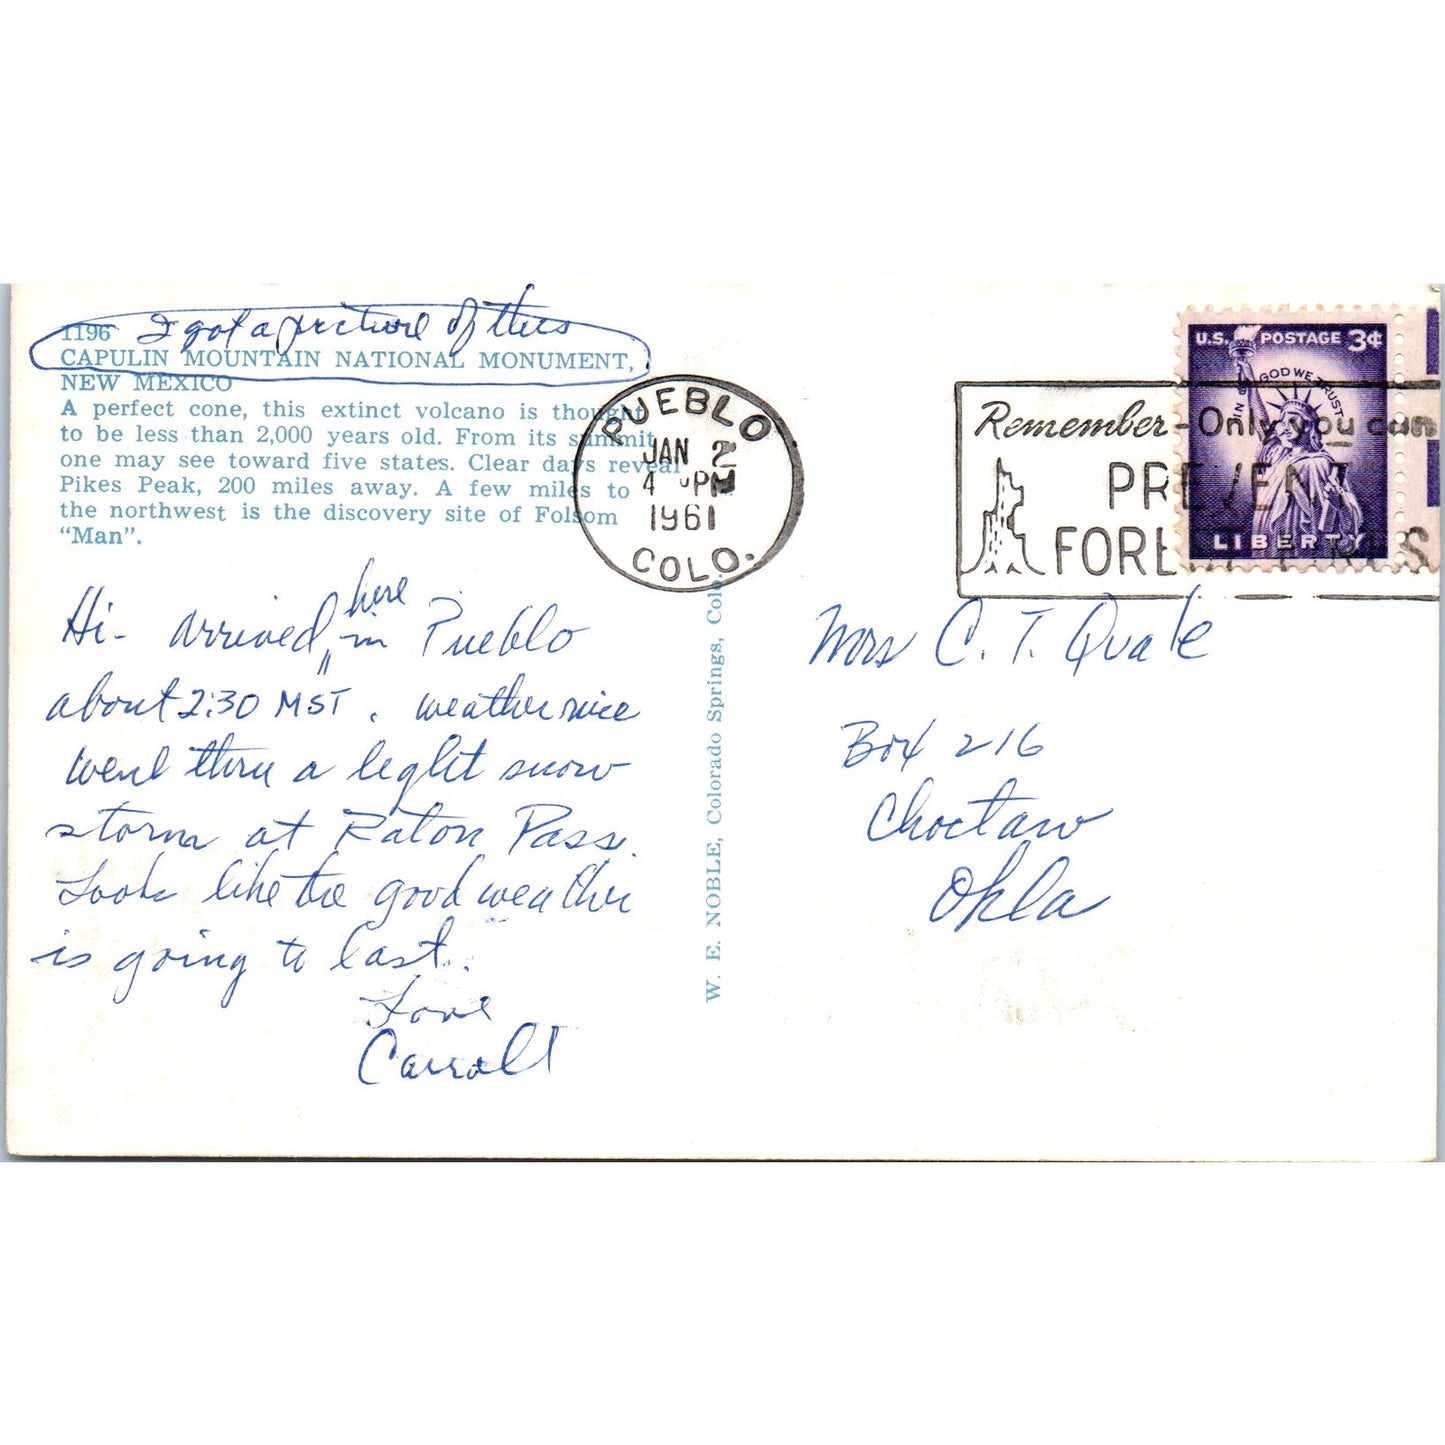 1196 I got a picture of this
CAPULIN MOUNTAIN NATIONAL MONUMENT,
NEW MEXICO
A perfect cone, this extinct volcano is thought
to be less than 2,000 years old. From its summit
one may see toward five states. Clear days reveal
Pikes Peak, 200 miles away. A few miles to
the northwest is the discovery site of Folsom
“Man”.
here
Hi- Arrived, in Pueblo
about 2:30 MST. weather nice
went thru a light snow
storm at Raton Pass.
Look like the good weather
is going to last.
Love
Carroll
W. E. NOBLE, Colorado Springs, Colo.
PUEBLO
JAN 2
4 PM
1961
COLO.
Remember - Only you can
PREVENT
FOREST FIRES
U.S. POSTAGE 3¢
IN GOD WE TRUST
LIBERTY
Mrs C. T. Quale
Box 216
Choctaw
Okla